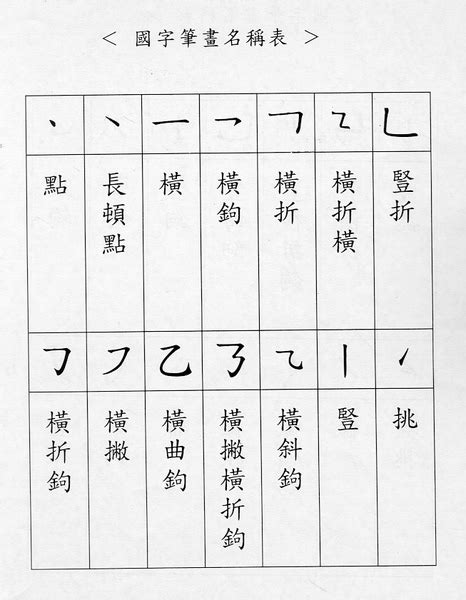 < 國字筆畫名稱表 >
丶 ㇔ 一 ㇖ ㇕ ㇅ ㇄
點
長頓點
橫
橫鉤
橫折
橫折橫
豎折
㇆ ㇇ 乙 ㇌ ⺄ 丨 ㇀
橫折鉤
橫撇
橫曲鉤
橫撇橫折鉤
橫斜鉤
豎
挑